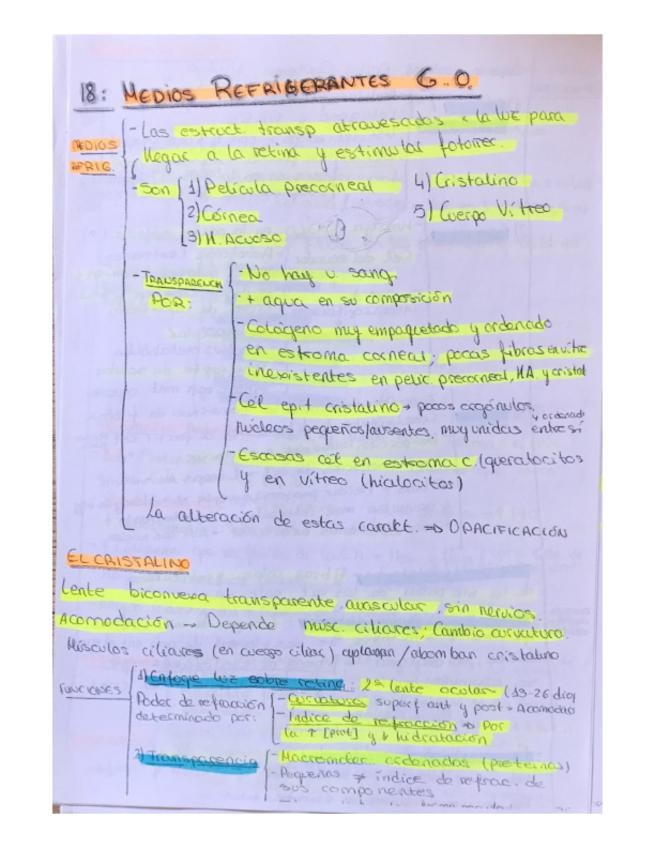 18: MEDIOS REFRIGERANTES G.O.
MEDIOS REFRIG.
- Las estruct. transp atravesados x la luz para
llegar a la retina y estimular fotorrec.
- Son 1) Película precorneal 4) Cristalino
2) Córnea 5) Cuerpo Vítreo
3) H. Acuoso
- TRANSPARENCIA POR:
- No hay v sang.
- + agua en su composición
- Colágeno muy empaquetado y ordenado
en estroma corneal; pocas fibras en vitre
inexistentes en pelic precorneal, HA y cristal
- Cél epit cristalino → pocos orgánulos,
núcleos pequeños/ausentes, muy unidas y ordenad entre sí
- Escasas cél en estroma c. (queratocitos
y en vítreo (hialocitos)
La alteración de estas caract. ⇒ OPACIFICACIÓN
EL CRISTALINO
Lente biconvexa transparente, avascular, sin nervios.
Acomodación → Depende músc. ciliares; Cambio curvatura.
Músculos ciliares (en cuerpo ciliar) aplanan/abomban cristalino
FUNCIONES
1) Enfoque luz sobre retina: 2ª lente ocular (19-26 diop
Poder de refracción determinado por:
- Curvaturas superf ant y post → Acomodac
- Índice de refracción ⇒ Por
la ↑ [prot] y ↓ hidratación
2) Transparencia
- Macromoléc. ordenadas (proteínas)
- Pequeñas ≠ índice de refrac. de
sus componentes